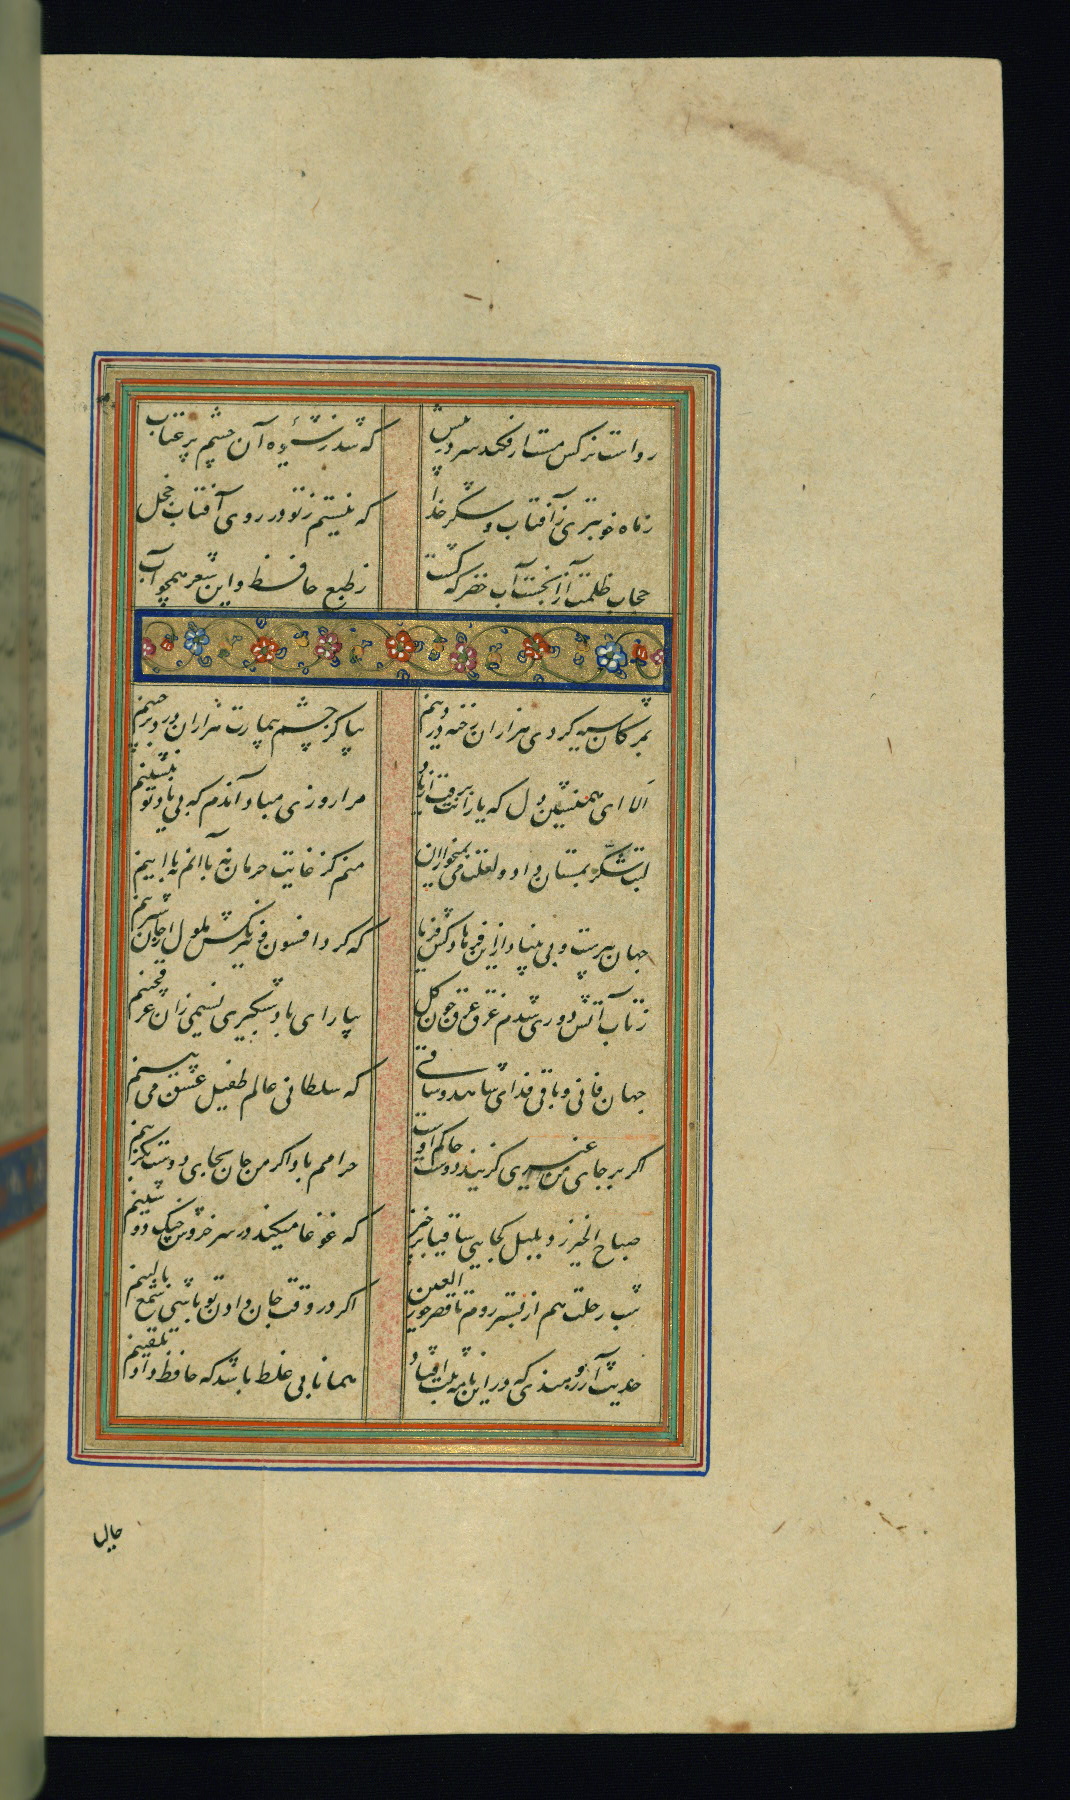 رواست نرکس مست ار فکند سر در پیش که شد ز شیوه آن چشم پر عتاب خجل
ز ماه خوبتری ز آفتاب و شکر خدا که نیستم ز تو در روی آفتاب خجل
حجاب ظلمت از آن بست آب خضر که گشت ز طبع حافظ و این شعر همچو آب خجل
بمژکان سیه کردی هزاران رخنه در دینم بیا کز چشم بیمارت هزاران درد برچینم
الا ای همنشین دل که یارانت برفت از یاد مرا روزی مباد آندم که بی یاد تو بنشینم
لبت شکر بمستان داد و لعلت می بمیخواران منم کز غایت حرمان نه با آنم نه با اینم
جهان پیرست و بی بنیاد از این فرهادکش فریاد که کرد افسون و نیرنگش ملول از جان شیرینم
ز تاب آتش دوری شدم غرق عرق چون کل بیار ای باد شبکیری نسیمی زان عرقچینم
جهان فانی و باقی فدای شاهد و ساقی که سلطانی عالم طفیل عشق می بینم
اکر بر جای من غیری کزیند دوست حاکم اوست حرامم باد اکر من جان بجای دوست بکزینم
صباح الخیر زد بلبل کجایی ساقیا برخیز که غوغا میکند در سر خروش چنک دوشینم
شب رحلت هم از بستر روم تا قصر حور العین اکر در وقت جان دادن تو باشی شمع بالینم
حدیث آرزومندی که در این نامه ثبت افتاد همانا بی غلط باشد که حافظ داد تلقینم